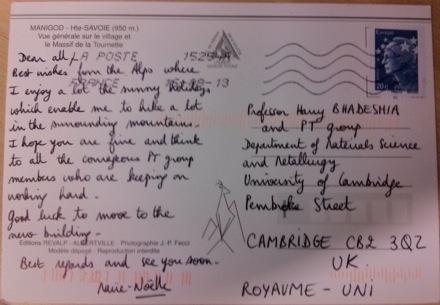 MANIGOD - Hte-SAVOIE (950 m.)
Vue générale sur le village et
le Massif de la Tournette
LA POSTE 15259A
08-13
Europe
20g
Dear all,
Best wishes from the Alps where
I enjoy a lot the sunny holidays
which enable me to hike a lot
in the surrounding mountains.
I hope you are fine and think
to all the courageous PT group
members who are keeping on
working hard.
Good luck to move to the
new building.
Best regards and see you soon.
Marie-Noëlle
Editions REVALP - ALBERTVILLE - Photographie J. P. Fecci
Modèle déposé - Reproduction interdite
Professor Harry BHADESHIA
and PT group
Department of Materials Science
and Metallurgy
University of Cambridge
Pembroke Street
CAMBRIDGE CB2 3QZ
UK.
ROYAUME - UNI